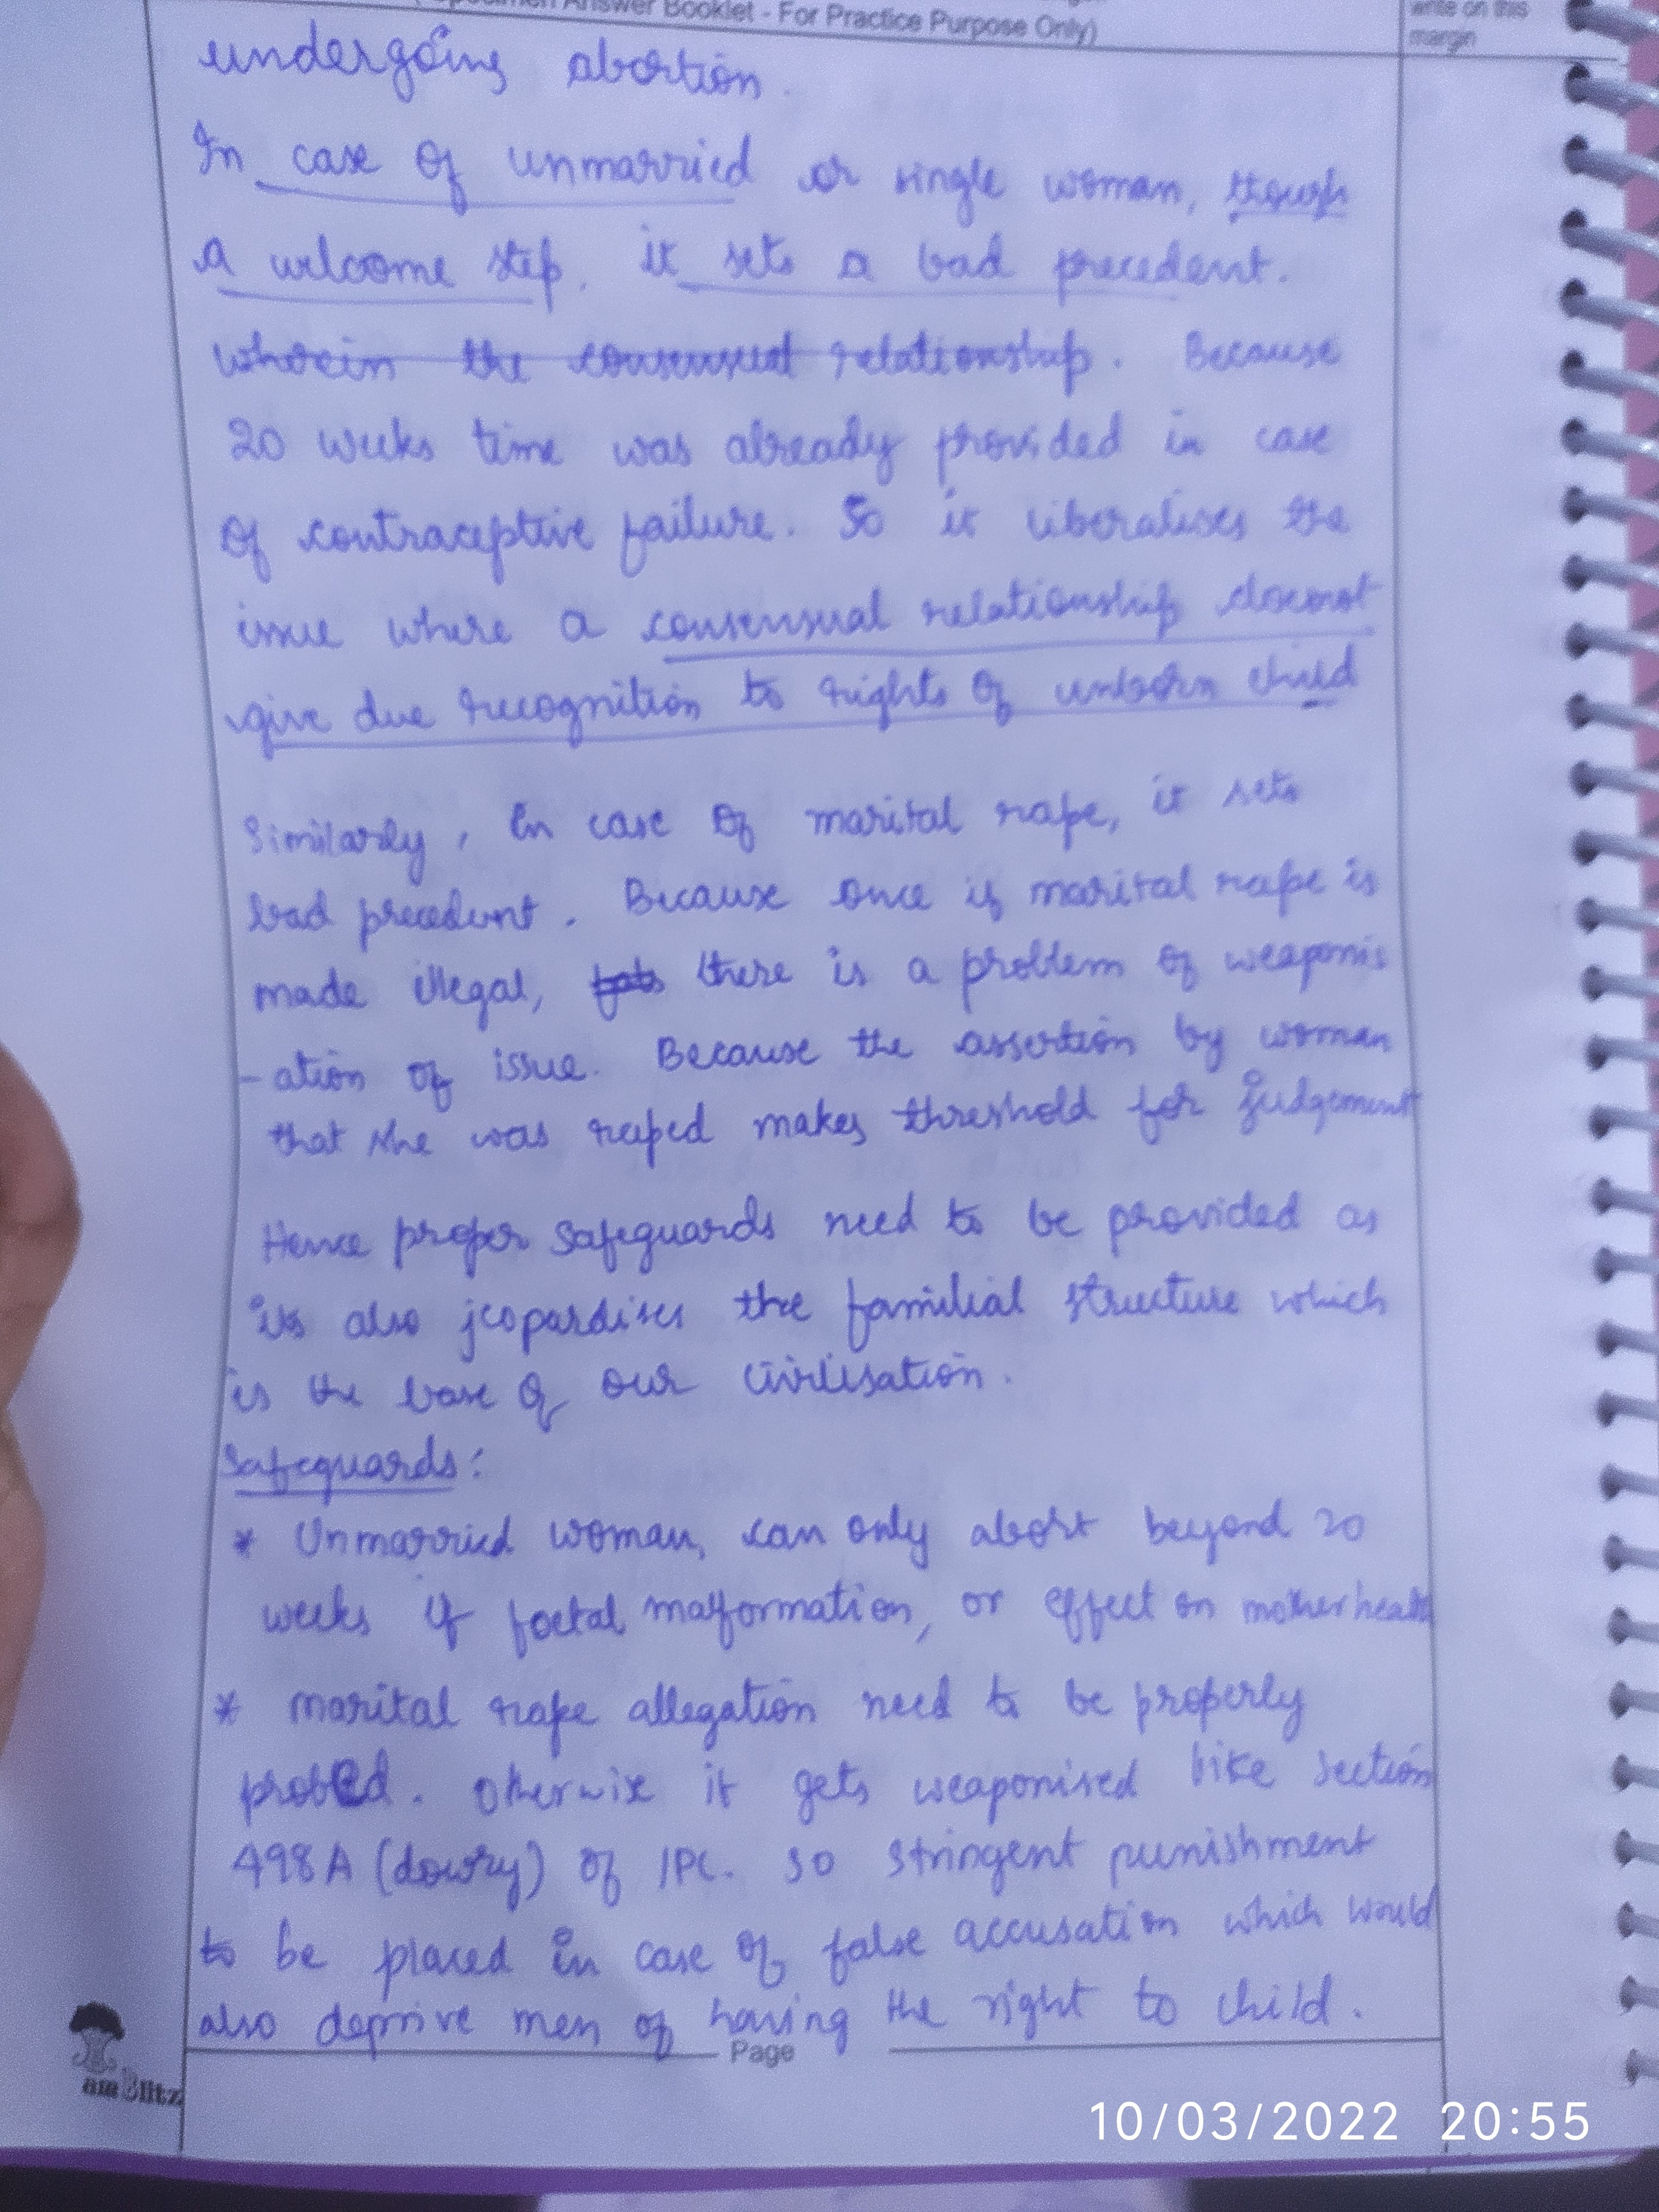 Answer Booklet - For Practice Purpose Only)
write on this
margin
undergoing abortion.
In case of unmarried or single woman, though
a welcome step, it sets a bad precedent.
wherein the consensual relationship. Because
20 weeks time was already provided in case
of contraceptive failure. So it liberalises the
issue where a consensual relationship doesnot
give due recognition to rights of unborn child
Similarly, in case of marital rape, it sets
bad precedent. Because once if marital rape is
made illegal, there is a problem of weaponis
-ation of issue. Because the assertion by woman
that she was raped makes threshold for judgement
Hence proper safeguards need to be provided as
its also jeopardises the familial structure which
is the base of our civilisation.
Safeguards:
* Unmarried woman, can only abort beyond 20
weeks if foetal malformation, or effect on mother health
* Marital rape allegation need to be properly
probed. Otherwise it gets weaponised like section
498A (dowry) of IPC. So stringent punishment
to be placed in case of false accusation which would
also deprive men of having the right to child.
Page
am Blitz
10/03/2022 20:55